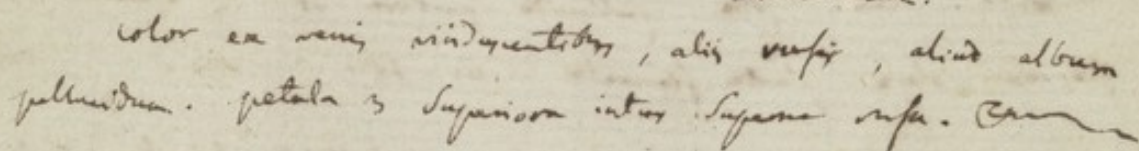 color ex venis viridescentibus, aliis rufis, aliud album
pellucidum. petala 3 superiora intus superne rufa.